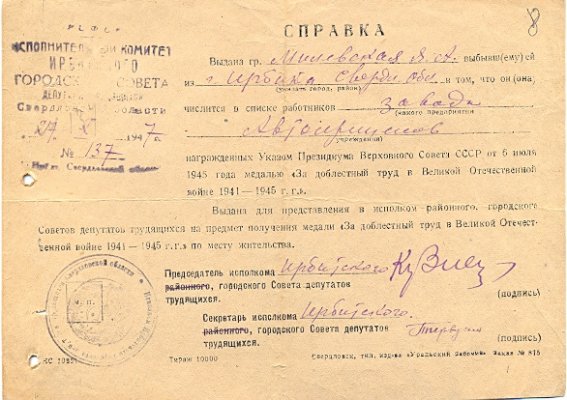 8
РСФСР
ИСПОЛНИТЕЛЬНЫЙ КОМИТЕТ
ИРБИТСКОГО
ГОРОДСКОГО СОВЕТА
ДЕПУТАТОВ
Свердловской области
1947 г.
№ 137
СПРАВКА
Выдана гр. Милевская Я.А. выбывш(ему) ей
из г Ирбита Сверд. Обл. в том, что он(она)
(указать город, район)
числится в списке работников завода
(какого предприятия
Автоприцепов
учреждения)
награжденных Указом Президиума Верховного Совета СССР от 6 июля
1945 года медалью «За доблестный труд в Великой Отечественной
войне 1941—1945 г. г.».
Выдана для представления в исполком районного, городского
Советов депутатов трудящихся на предмет получения медали «За доблестный труд в Великой Отечест-
венной войне 1941—1945 г. г.» по месту жительства.
Председатель исполкома Ирбитского
районного, городского Совета депутатов
трудящихся.
(подпись)
Секретарь исполкома Ирбитского.
районного, городского Совета депутатов
трудящихся.
(подпись)
Тираж 10000
Свердловск, тип. изд-ва «Уральский Рабочий» Заказ № 815